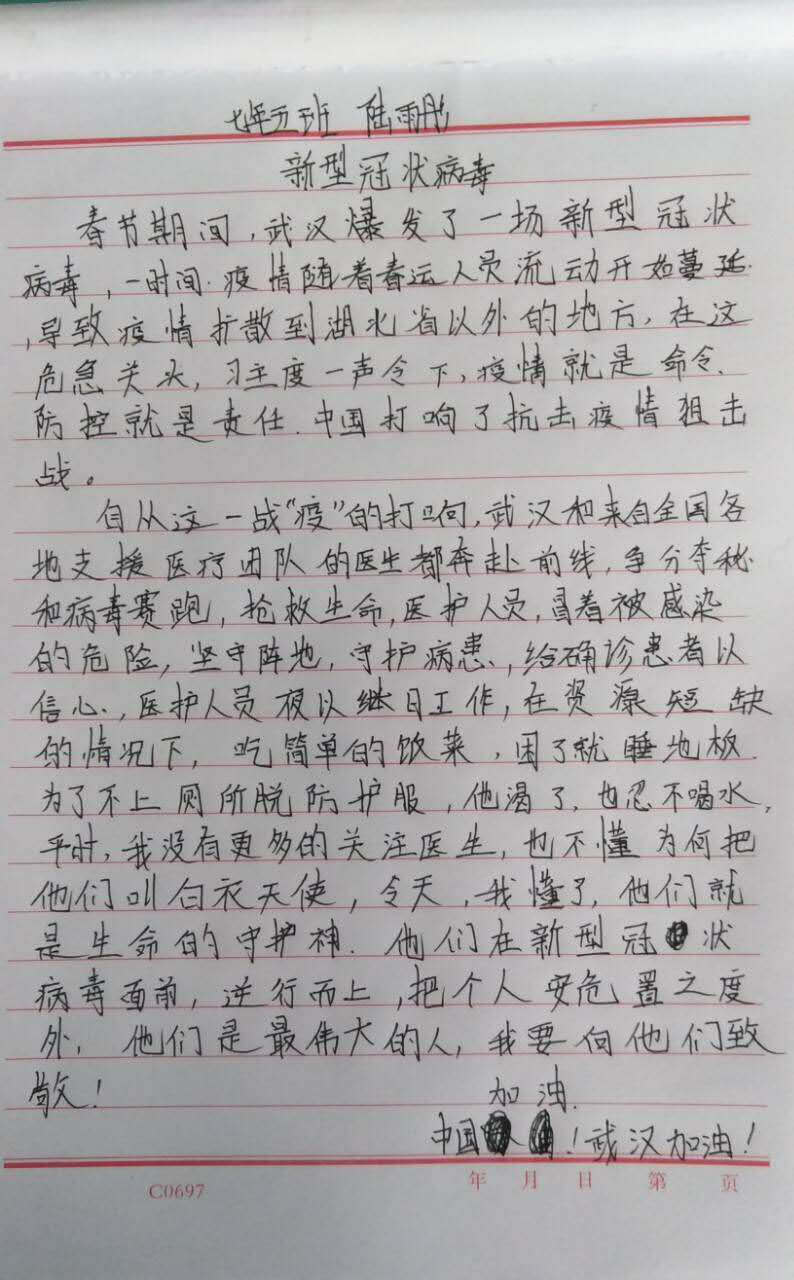 七年五班 陆雨彤
新型冠状病毒
春节期间,武汉爆发了一场新型冠状
病毒,一时间.疫情随着春运人员流动开始蔓延.
,导致疫情扩散到湖北省以外的地方,在这
危急关头,习主度一声令下,疫情就是命令.
防控就是责任.中国打响了抗击疫情狙击
战。
自从这一战“疫”的打响,武汉和来自全国各
地支援医疗团队的医生都奔赴前线,争分夺秒
和病毒赛跑,抢救生命,医护人员,冒着被感染
的危险,坚守阵地,守护病患,给确诊患者以
信心,医护人员夜以继日工作,在资源短缺
的情况下,吃简单的饭菜,困了就睡地板.
为了不上厕所脱防护服,他渴了,也忍不喝水,
平时,我没有更多的关注医生,也不懂为何把
他们叫白衣天使,令天,我懂了,他们就
是生命的守护神.他们在新型冠状
病毒面前,逆行而上,把个人安危置之度
外,他们是最伟大的人,我要向他们致
敬!
加油.
中国!武汉加油!
C0697 年 月 日 第 页